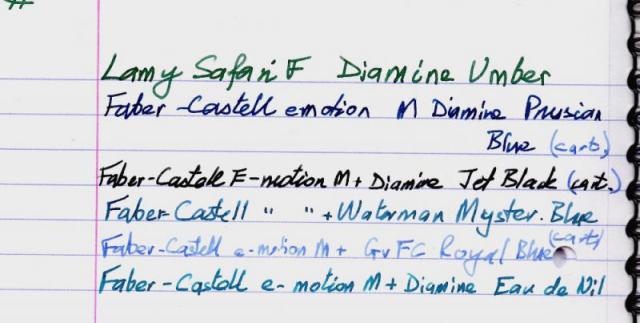 Lamy Safari F Diamine Umber
Faber-Castell emotion M Diamine Prussian
Blue (carts)
Faber-Castell E-motion M+ Diamine Jet Black (cart.)
Faber-Castell " " + Waterman Myster. Blue
Faber-Castell e-motion M+ GvFC Royal Blue (carts)
Faber-Castell e-motion M+ Diamine Eau de Nil